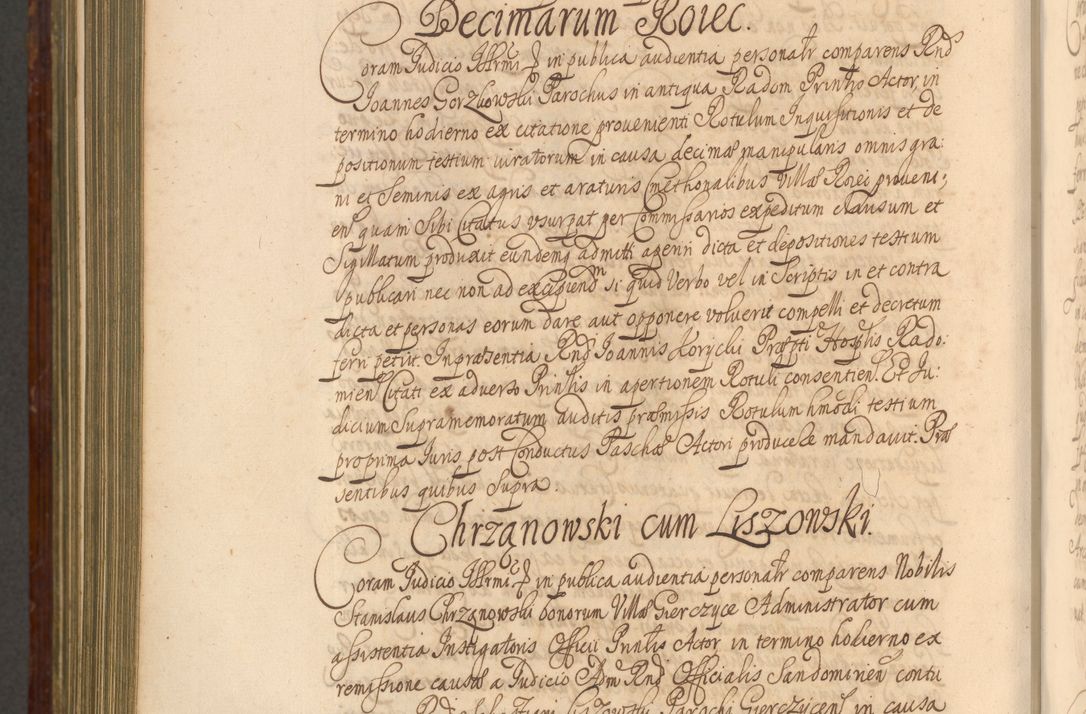 Decimarum Roiec.
Coram Judicio Illrmi D in publica audientia personalr comparens Rnd
Joannes Gorzkowski Parochus in antiqua Radom Prinlis Actor, in
termino hodierno ex citatione provenienti Rotulum Inquisitionis et de
positionum testium iuratorum in causa decimæ manipularis omnis gra:
ni et seminis ex agris et araturis Cmethonalibus Villæ Roiec proveni;
en quam sibi Citatus usurpat per Commissarios expeditum clausum et
Sigillatum produxit eundemq admitti aperiri dicta et depositiones testium
publicari nec non ad excipiend si quid Verbo vel in Scriptis in et contra
dicta et personas eorum dare aut opponere voluerit compelli et decretum
ferri petiit. In præsentia Rnd Joannis Korycki Præpti Hosplis Rado:
mien Citati ex adverso Prinlis in apertionem Rotuli consentien. Et Ju:
dicium Supramemoratum auditis præmissis Rotulum hmodi testium
pro prima Juris post Conductus Paschæ Actori producere mandavit. Præ
sentibus quibus Supra.
Chrzanowski cum Liszowski.
Coram Judicio Illrmi D in publica audientia personalr comparens Nobilis
Stanislaus Chrzanowski bonorum Villæ Gierczyce Administrator cum
assistentia Instigatoris Officii Prinlis Actor in termino hodierno ex
remissione causæ a Judicio Adm Rnd Officialis Sandomirien contu
Liszowski Parochi Gierczycen in causa